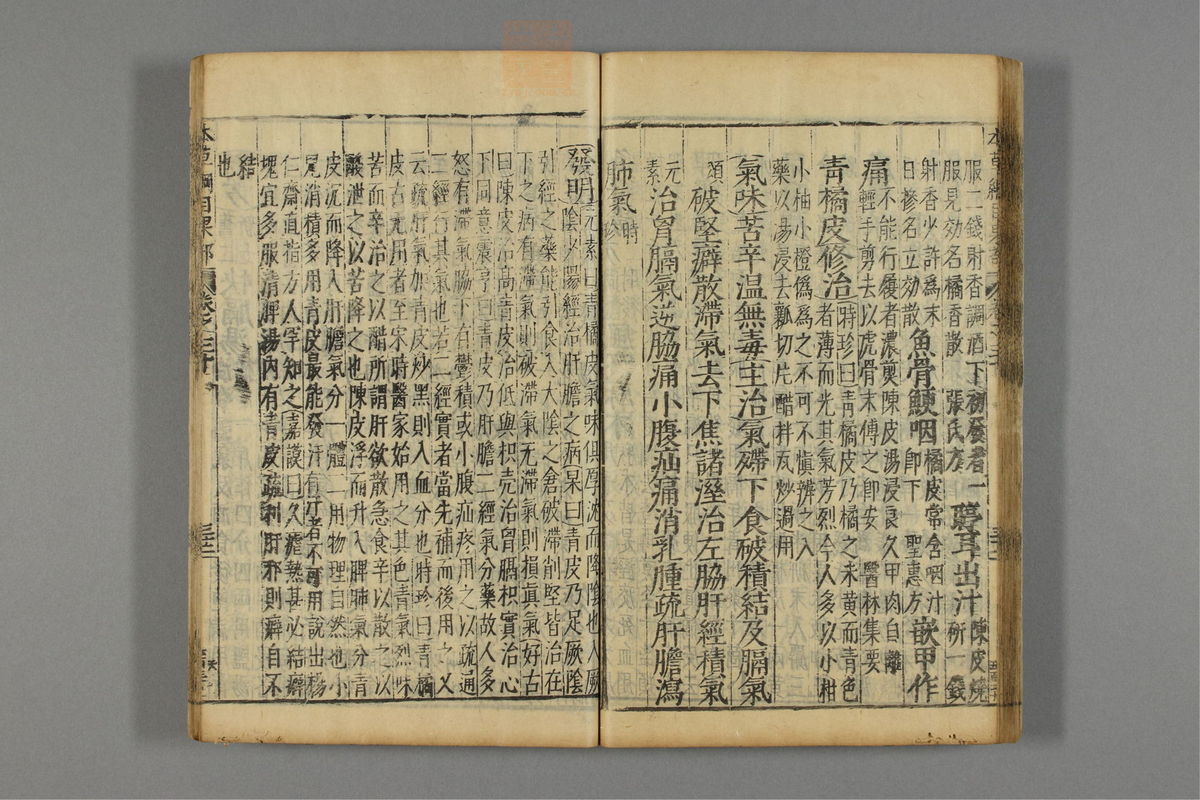 服二錢射香調酒下初發者一
服見効名橘香散 張氏方 聤耳出汁 陳皮燒
射香少許爲末 魚骨鯁咽 橘皮常含咽汁 研一錢
日摻名立効散 卽下 聖惠方 嵌甲作
痛 不能行履者濃煎陳皮湯浸良久甲肉自離
輕手剪去以虎骨末傅之卽安 醫林集要
青橘皮修治 時珍曰青橘皮乃橘之未黃而青色
者薄而光其氣芳烈今人多以小柑
小柚小橙僞爲之不可不愼辨之入
藥以湯浸去瓤切片醋拌瓦炒過用
氣味苦辛温無毒主治氣殢下食破積結及膈氣
頌 破堅癖散滯氣去下焦諸溼治左脇肝經積氣
元素 治胷膈氣逆脇痛小腹疝痛消乳腫疏肝膽瀉
肺氣 時珍
發明 元素曰青橘皮氣味俱厚沈而降陰也入厥
陰少陽經治肝膽之病杲曰青皮乃足厥陰
引經之藥能引食入太陰之倉破滯削堅皆治在
下之病有滯氣則破滯氣无滯氣則損眞氣好古
曰陳皮治高青皮治低與枳壳治胷膈枳實治心
下同意震亨曰青皮乃肝膽二經氣分藥故人多
怒有滯氣脇下有鬱積或小腹疝疼用之以疏通
二經行其氣也若二經實者當先補而後用之又
云疏肝氣加青皮炒黑則入血分也時珍曰青橘
皮古无用者至宋時醫家始用之其色青氣烈味
苦而辛治之以醋所謂肝欲散急食辛以散之以
酸泄之以苦降之也陳皮浮而升入脾肺氣分青
皮沉而降入肝膽氣分一體二用物理自然也小
兒消積多用青皮最能發汗有汗者不可用說出楊
仁齋直指方人罕知之嘉謨曰久瘧熱甚必結癖
塊宜多服清脾湯內有青皮疏利肝邪則癖自不
結也
本草綱目果部 卷之三十 三十二